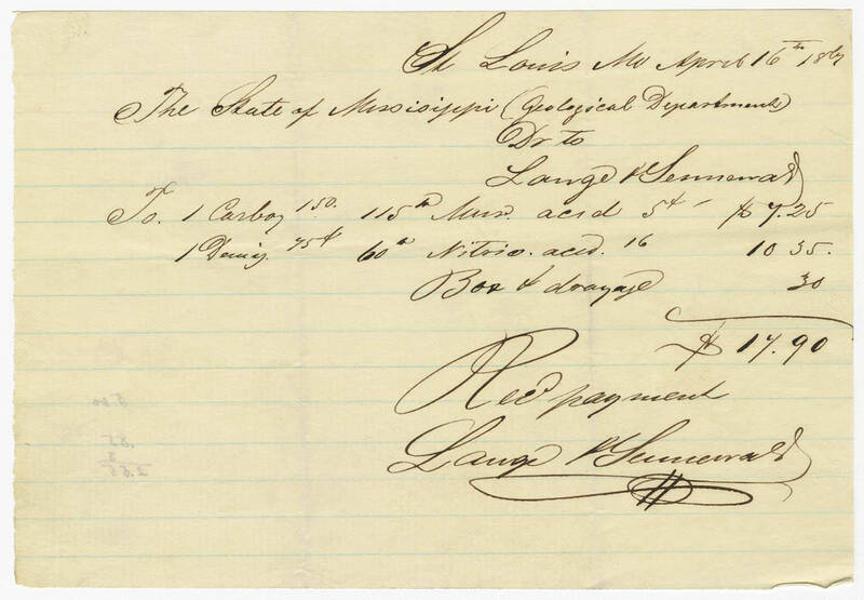 St Louis Mo April 16th 1867
The State of Mississippi (Geological Department)
Dr to
Lange & Sennewald
To. 1 Carboy 1.50. 115 lb Mur. acid 5¢ $7.25
1 Demij. 75¢ 60 lb Nitric. acid. 16 10 35.
Box & drayage 30
$17.90
Rec'd payment
Lange & Sennewald